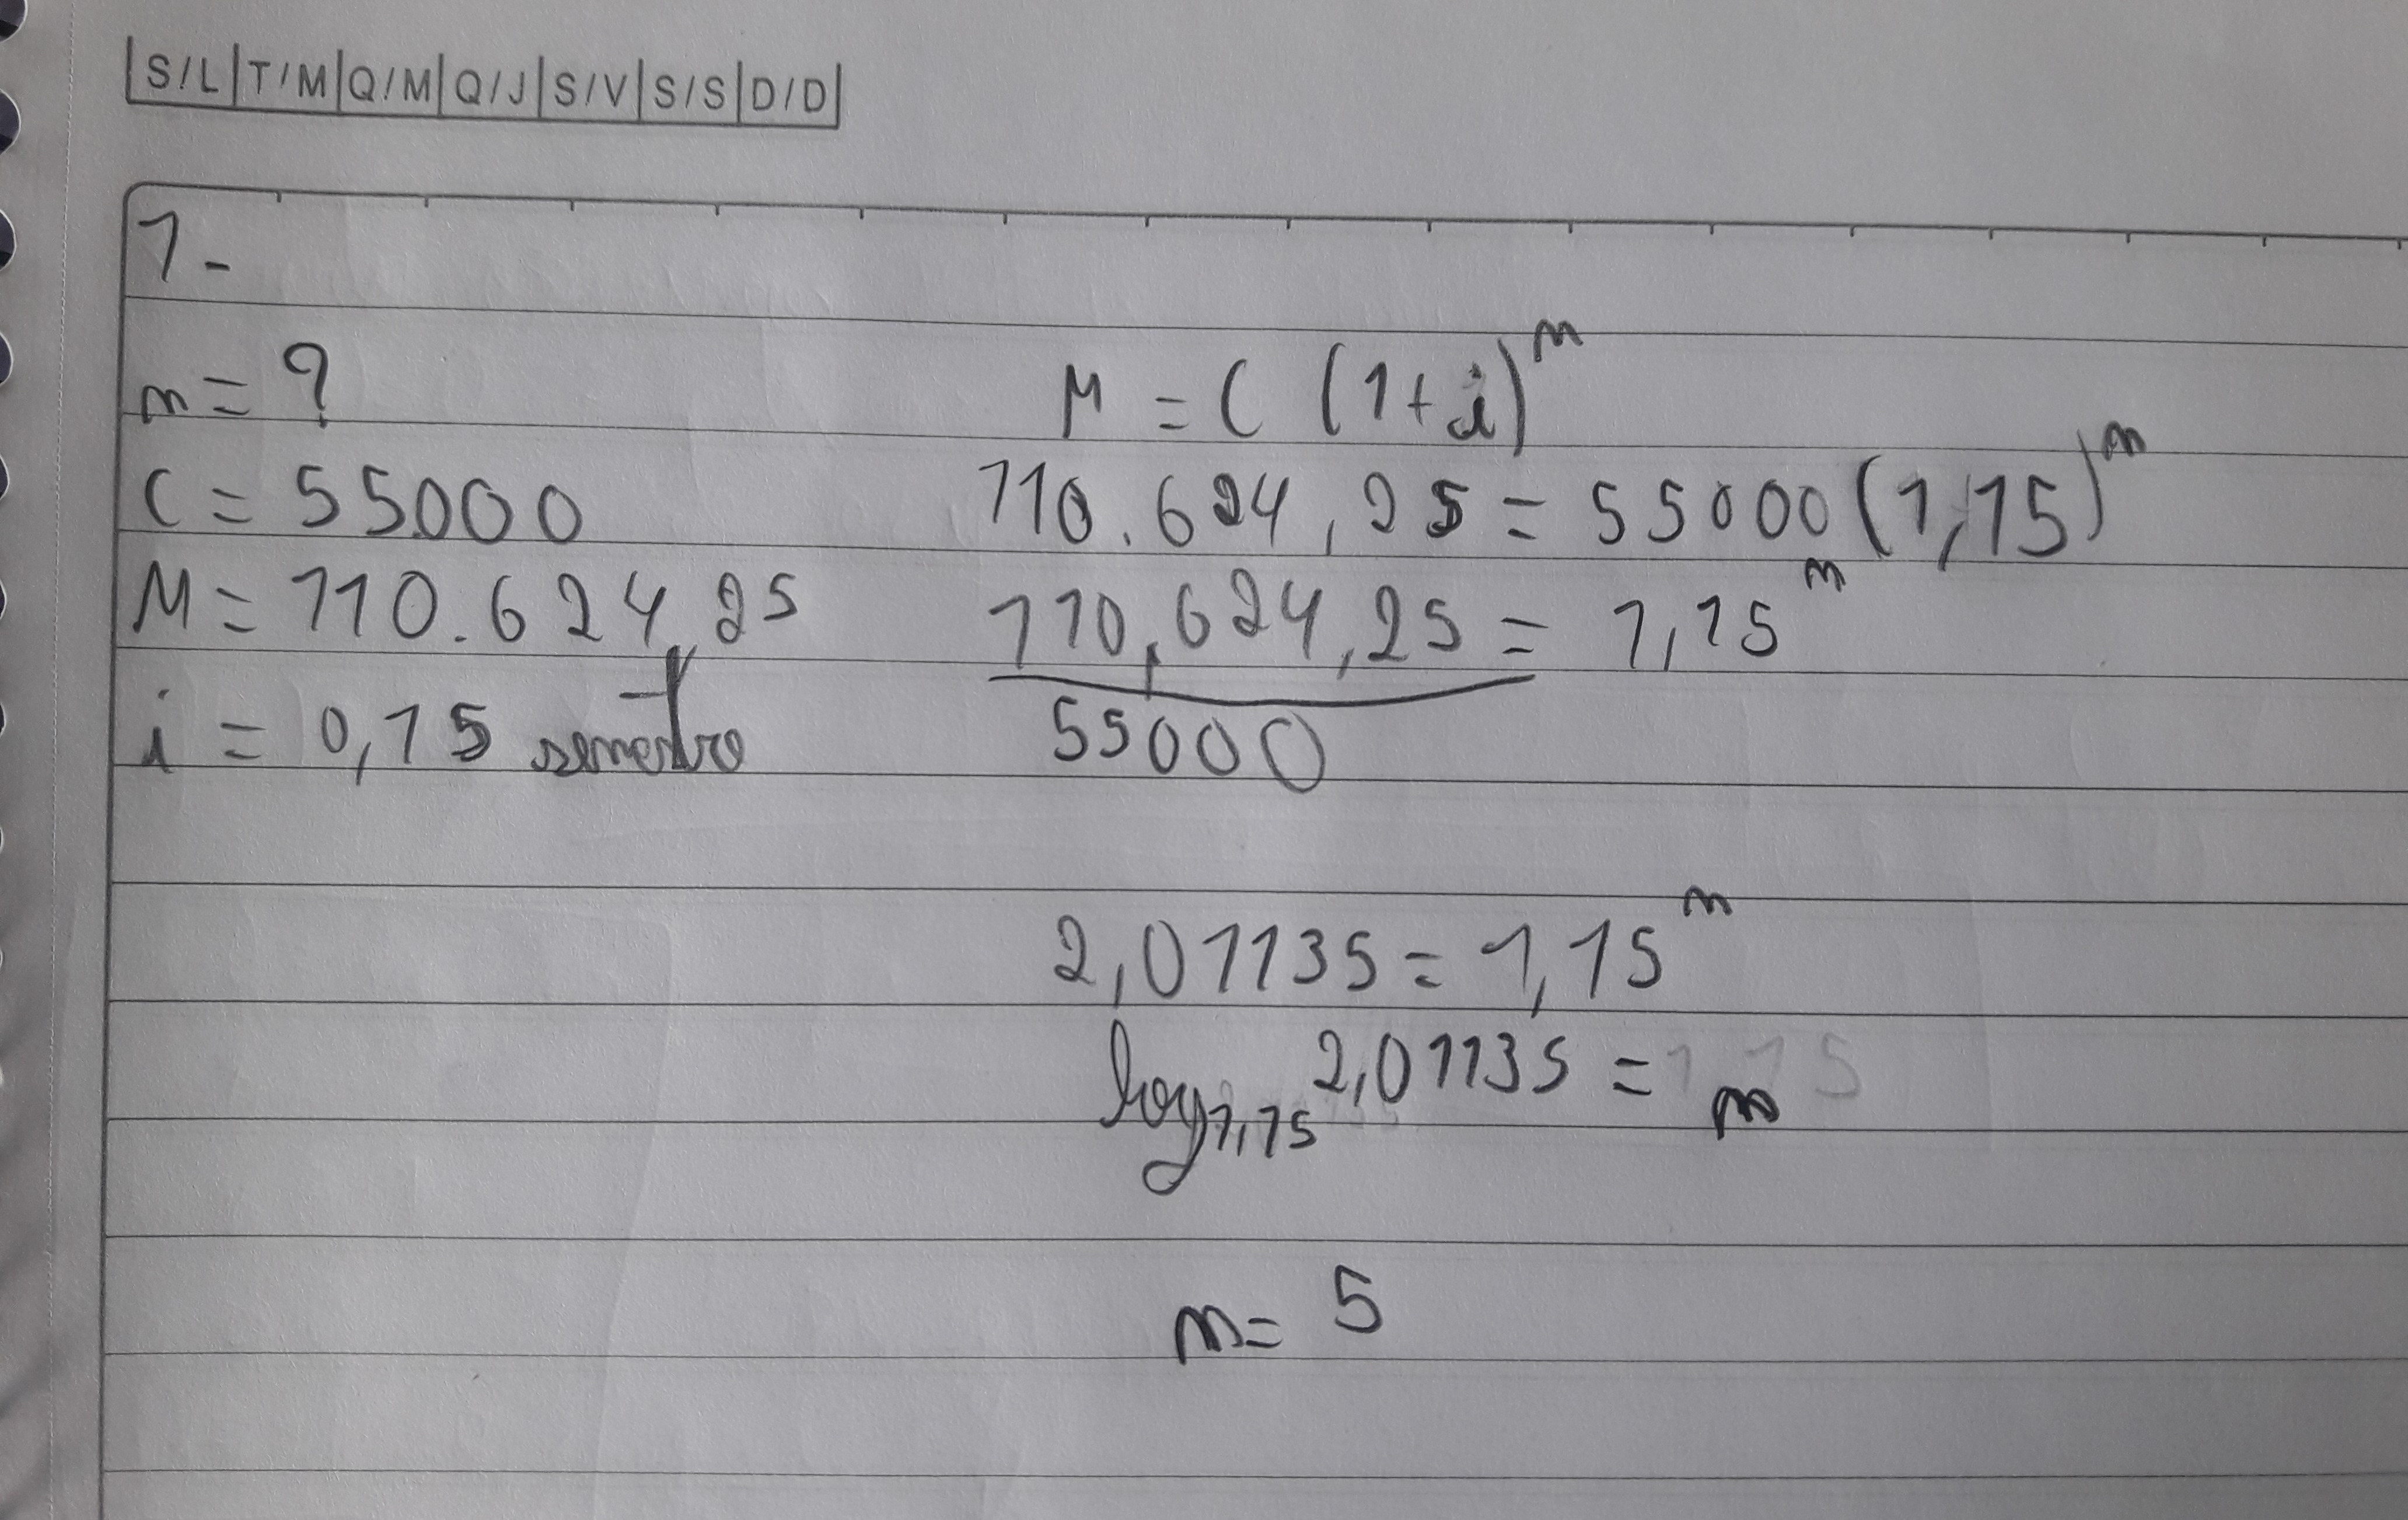 S/L T/M Q/M Q/J S/V S/S D/D
1-
n = ?
C = 55000
M = 110.624,25
i = 0,15 semestre
M = C (1+i)^n
110.624,25 = 55000 (1,15)^n
110,624,25 = 1,15^n
55000
2,01135 = 1,15^n
log1,15 2,01135 = n
n = 5